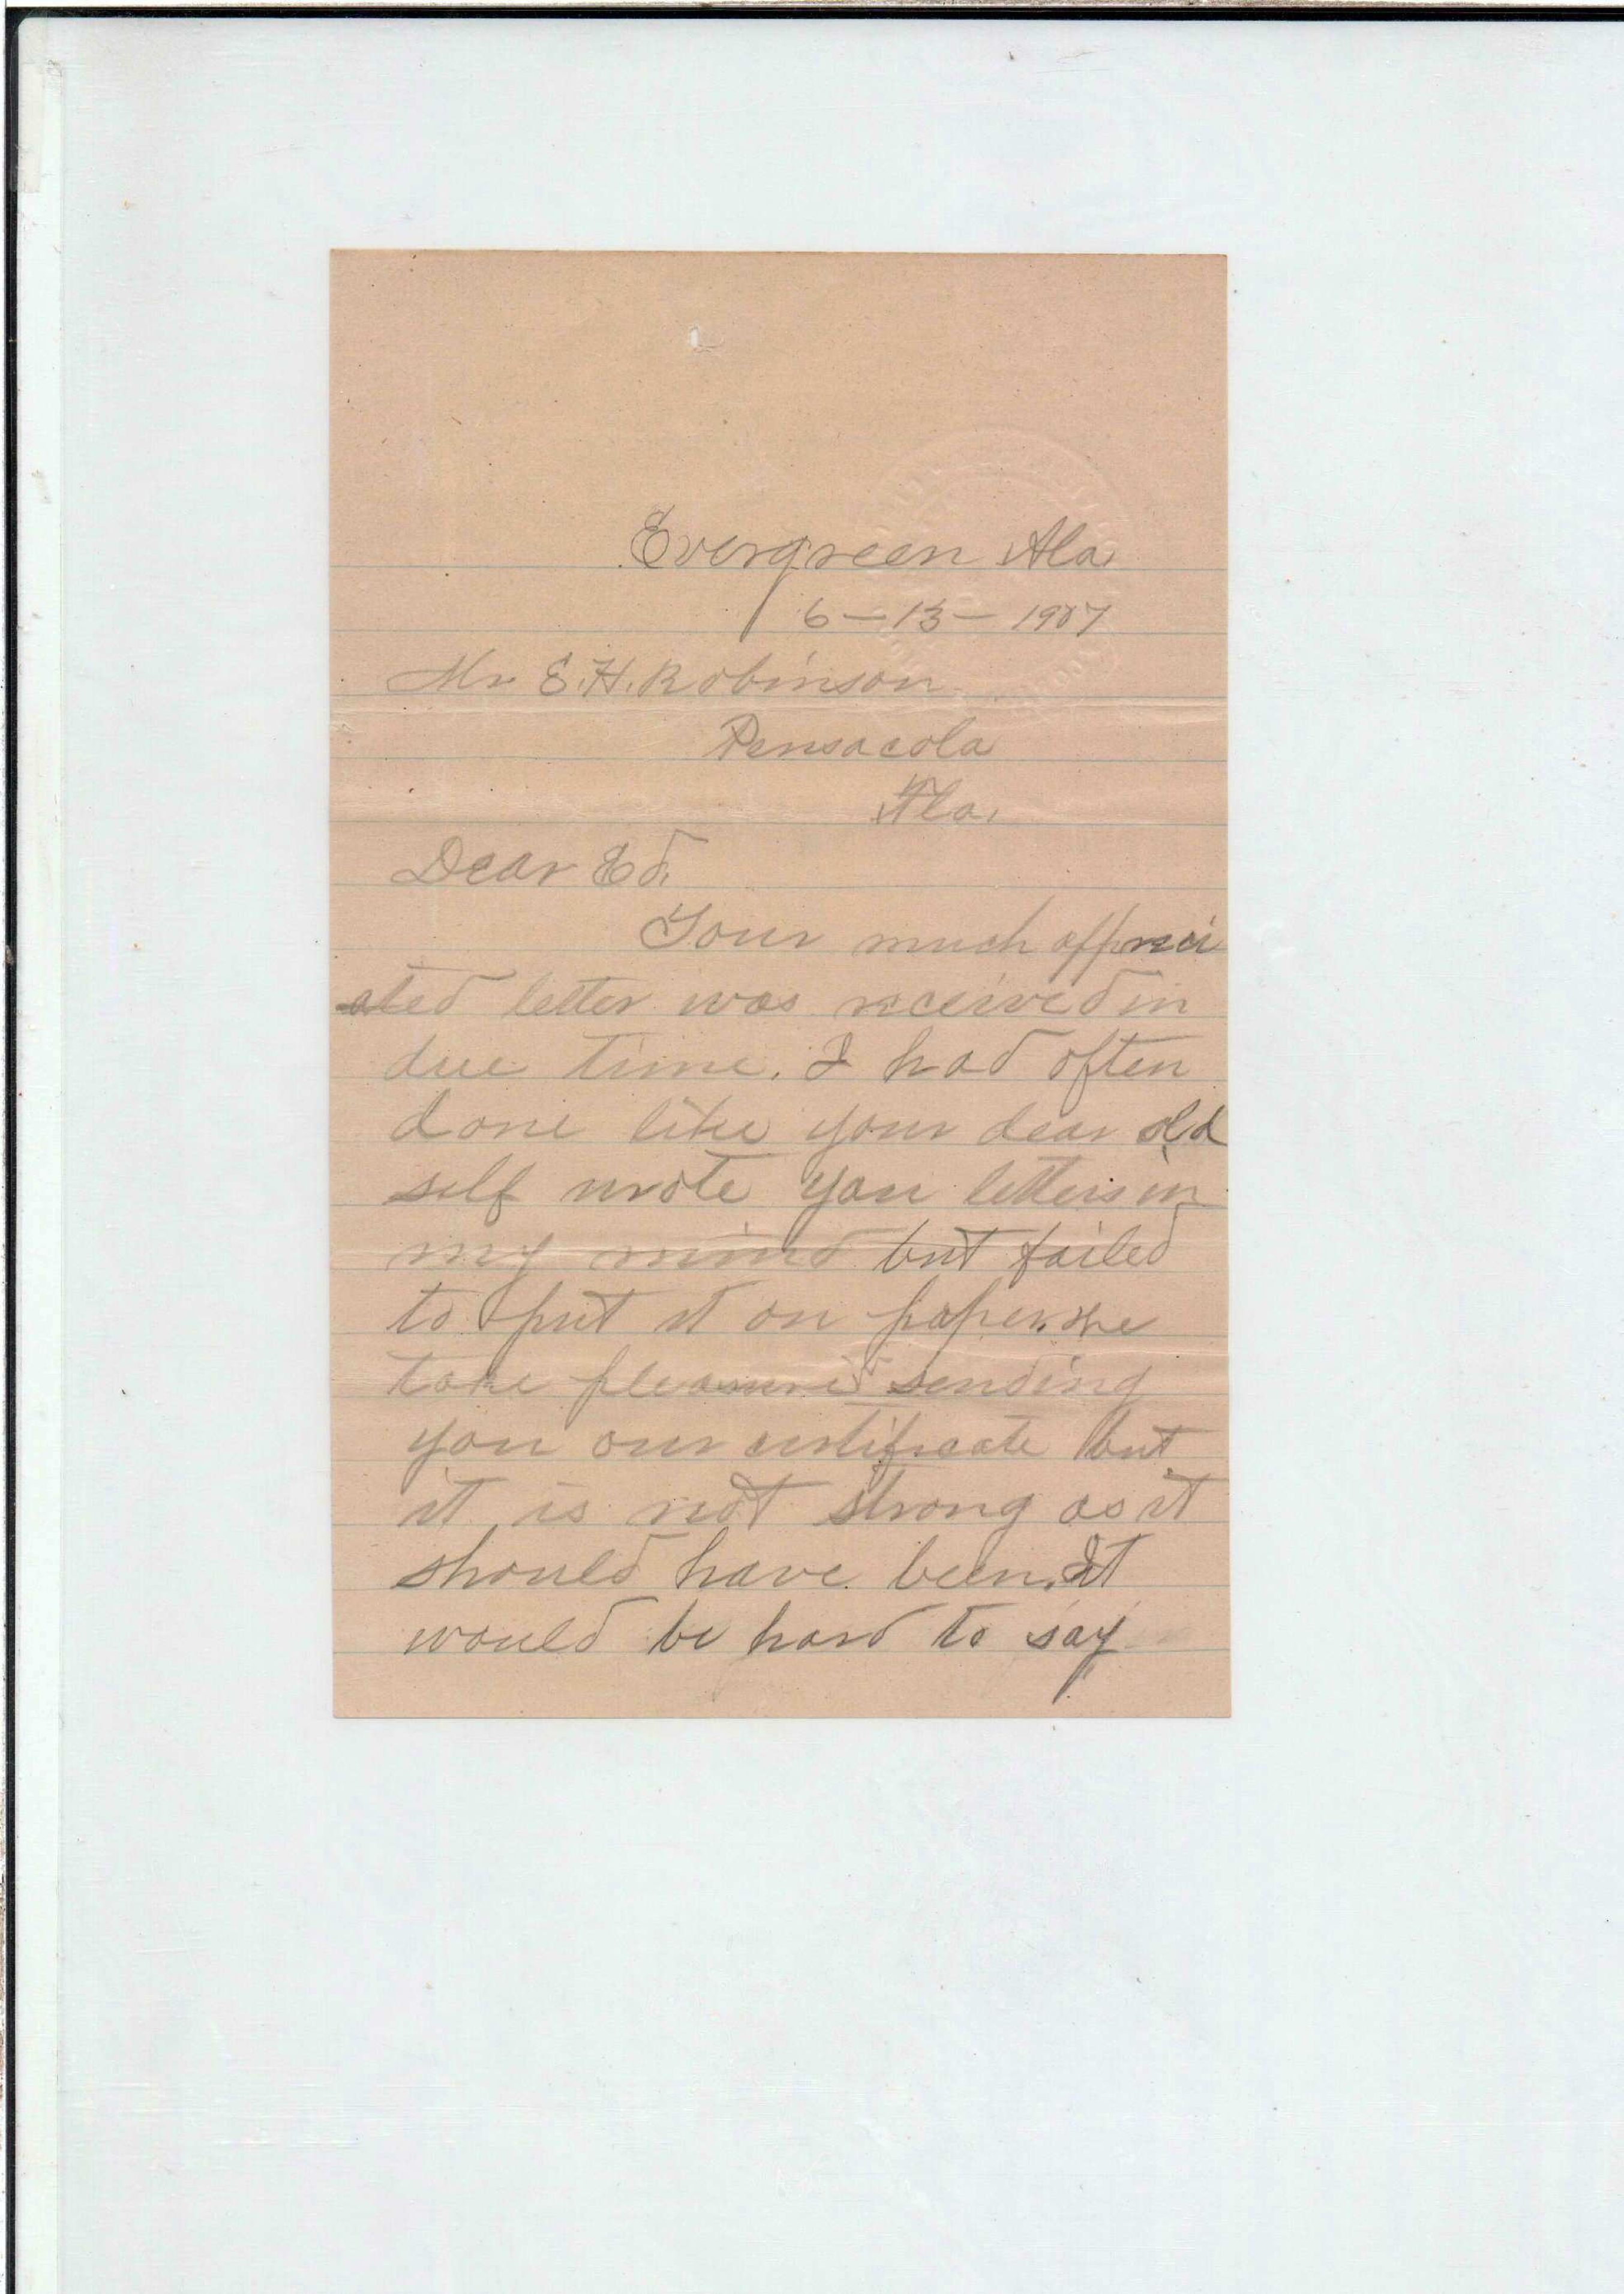 Evergreen Ala.
6-13-1907
Mr E.H. Robinson
Pensacola
Fla.
Dear Ed.
Your much appreci
ated letter was received in
due time. I had often
done like your dear old
self wrote you letters in
my mind but failed
to put it on paper. We
take pleasure sending
you our certificate but
it is not strong as it
should have been. It
would be hard to say